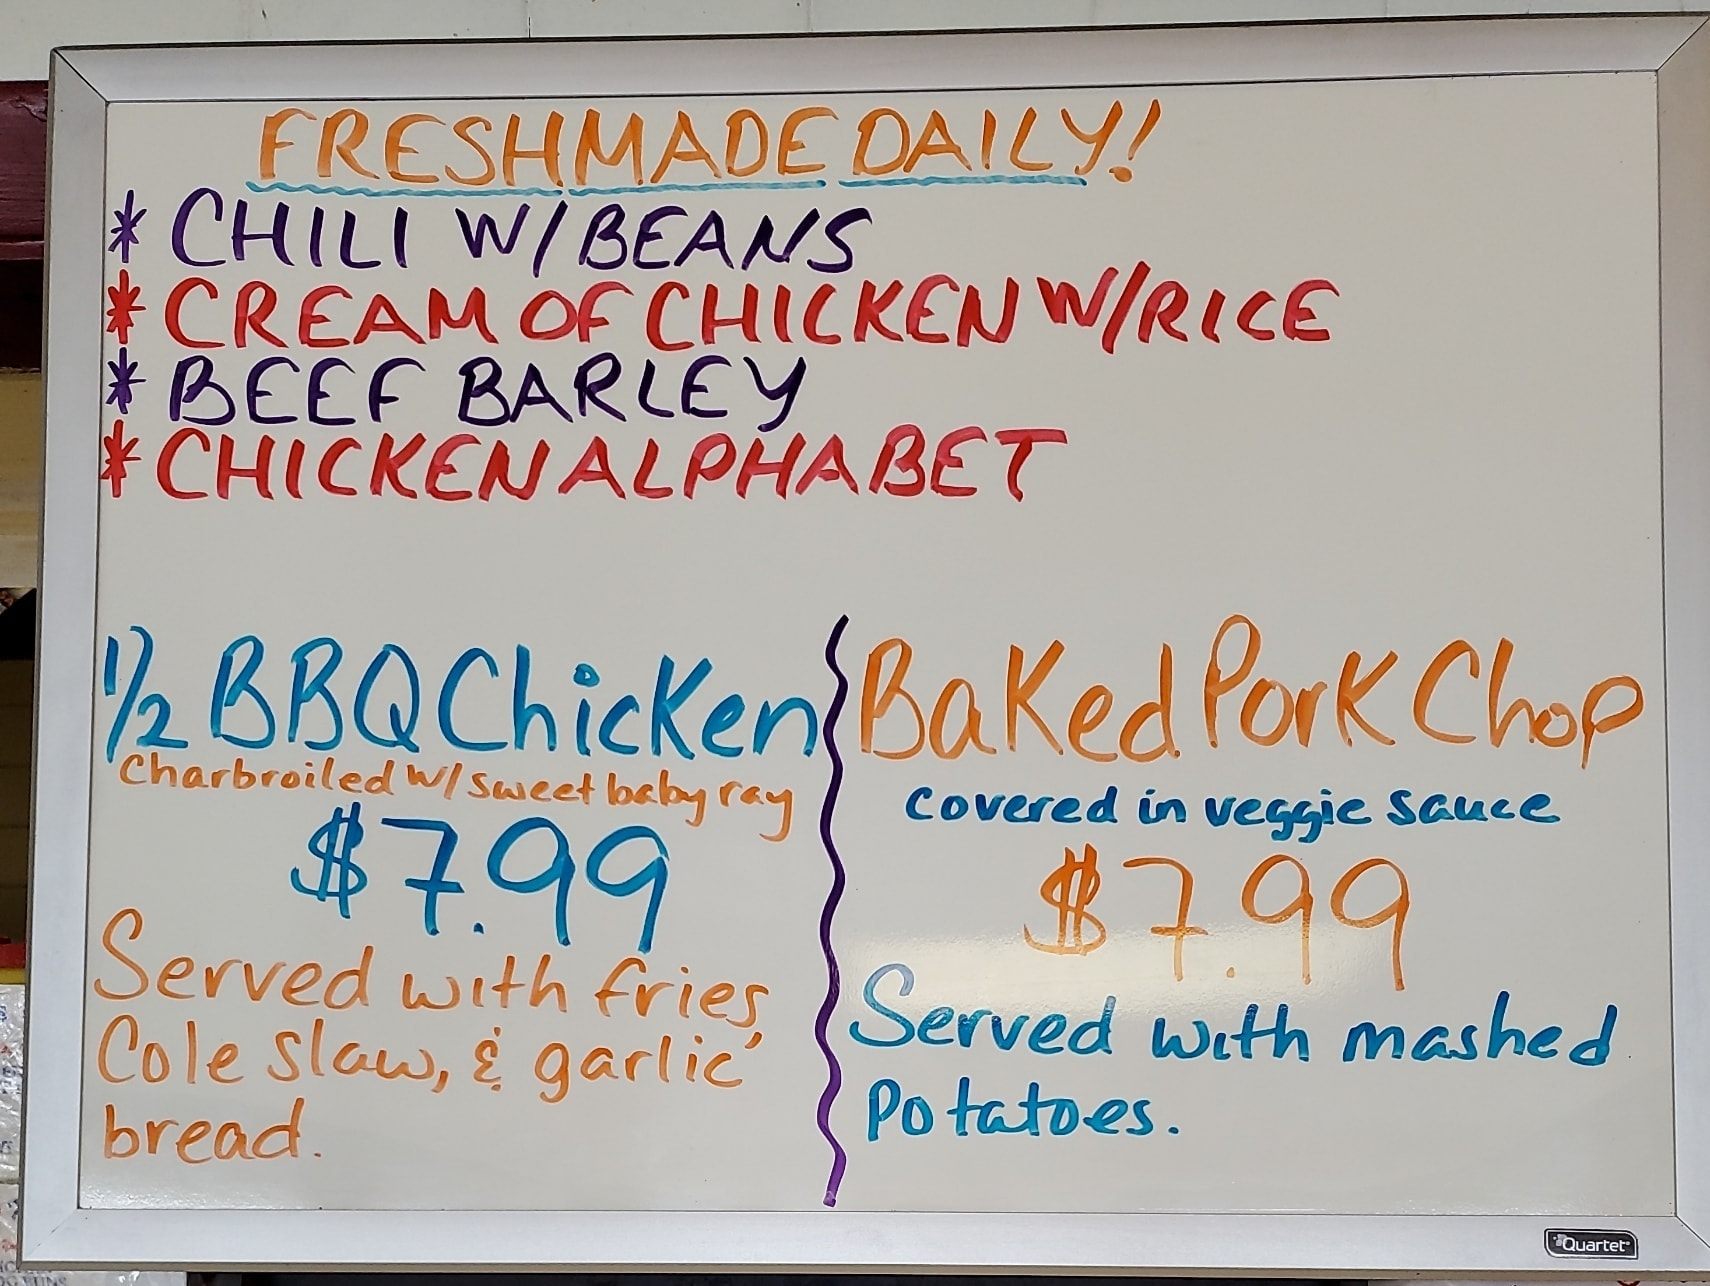 FRESH MADE DAILY!
* CHILI W/BEANS
* CREAM OF CHICKEN W/RICE
* BEEF BARLEY
* CHICKEN ALPHABET
1/2 BBQ Chicken
Charbroiled w/ sweet baby ray
$7.99
Served with fries,
Cole slaw, & garlic
bread.
Baked Pork Chop
covered in veggie sauce
$7.99
Served with mashed
Potatoes.
Quartet